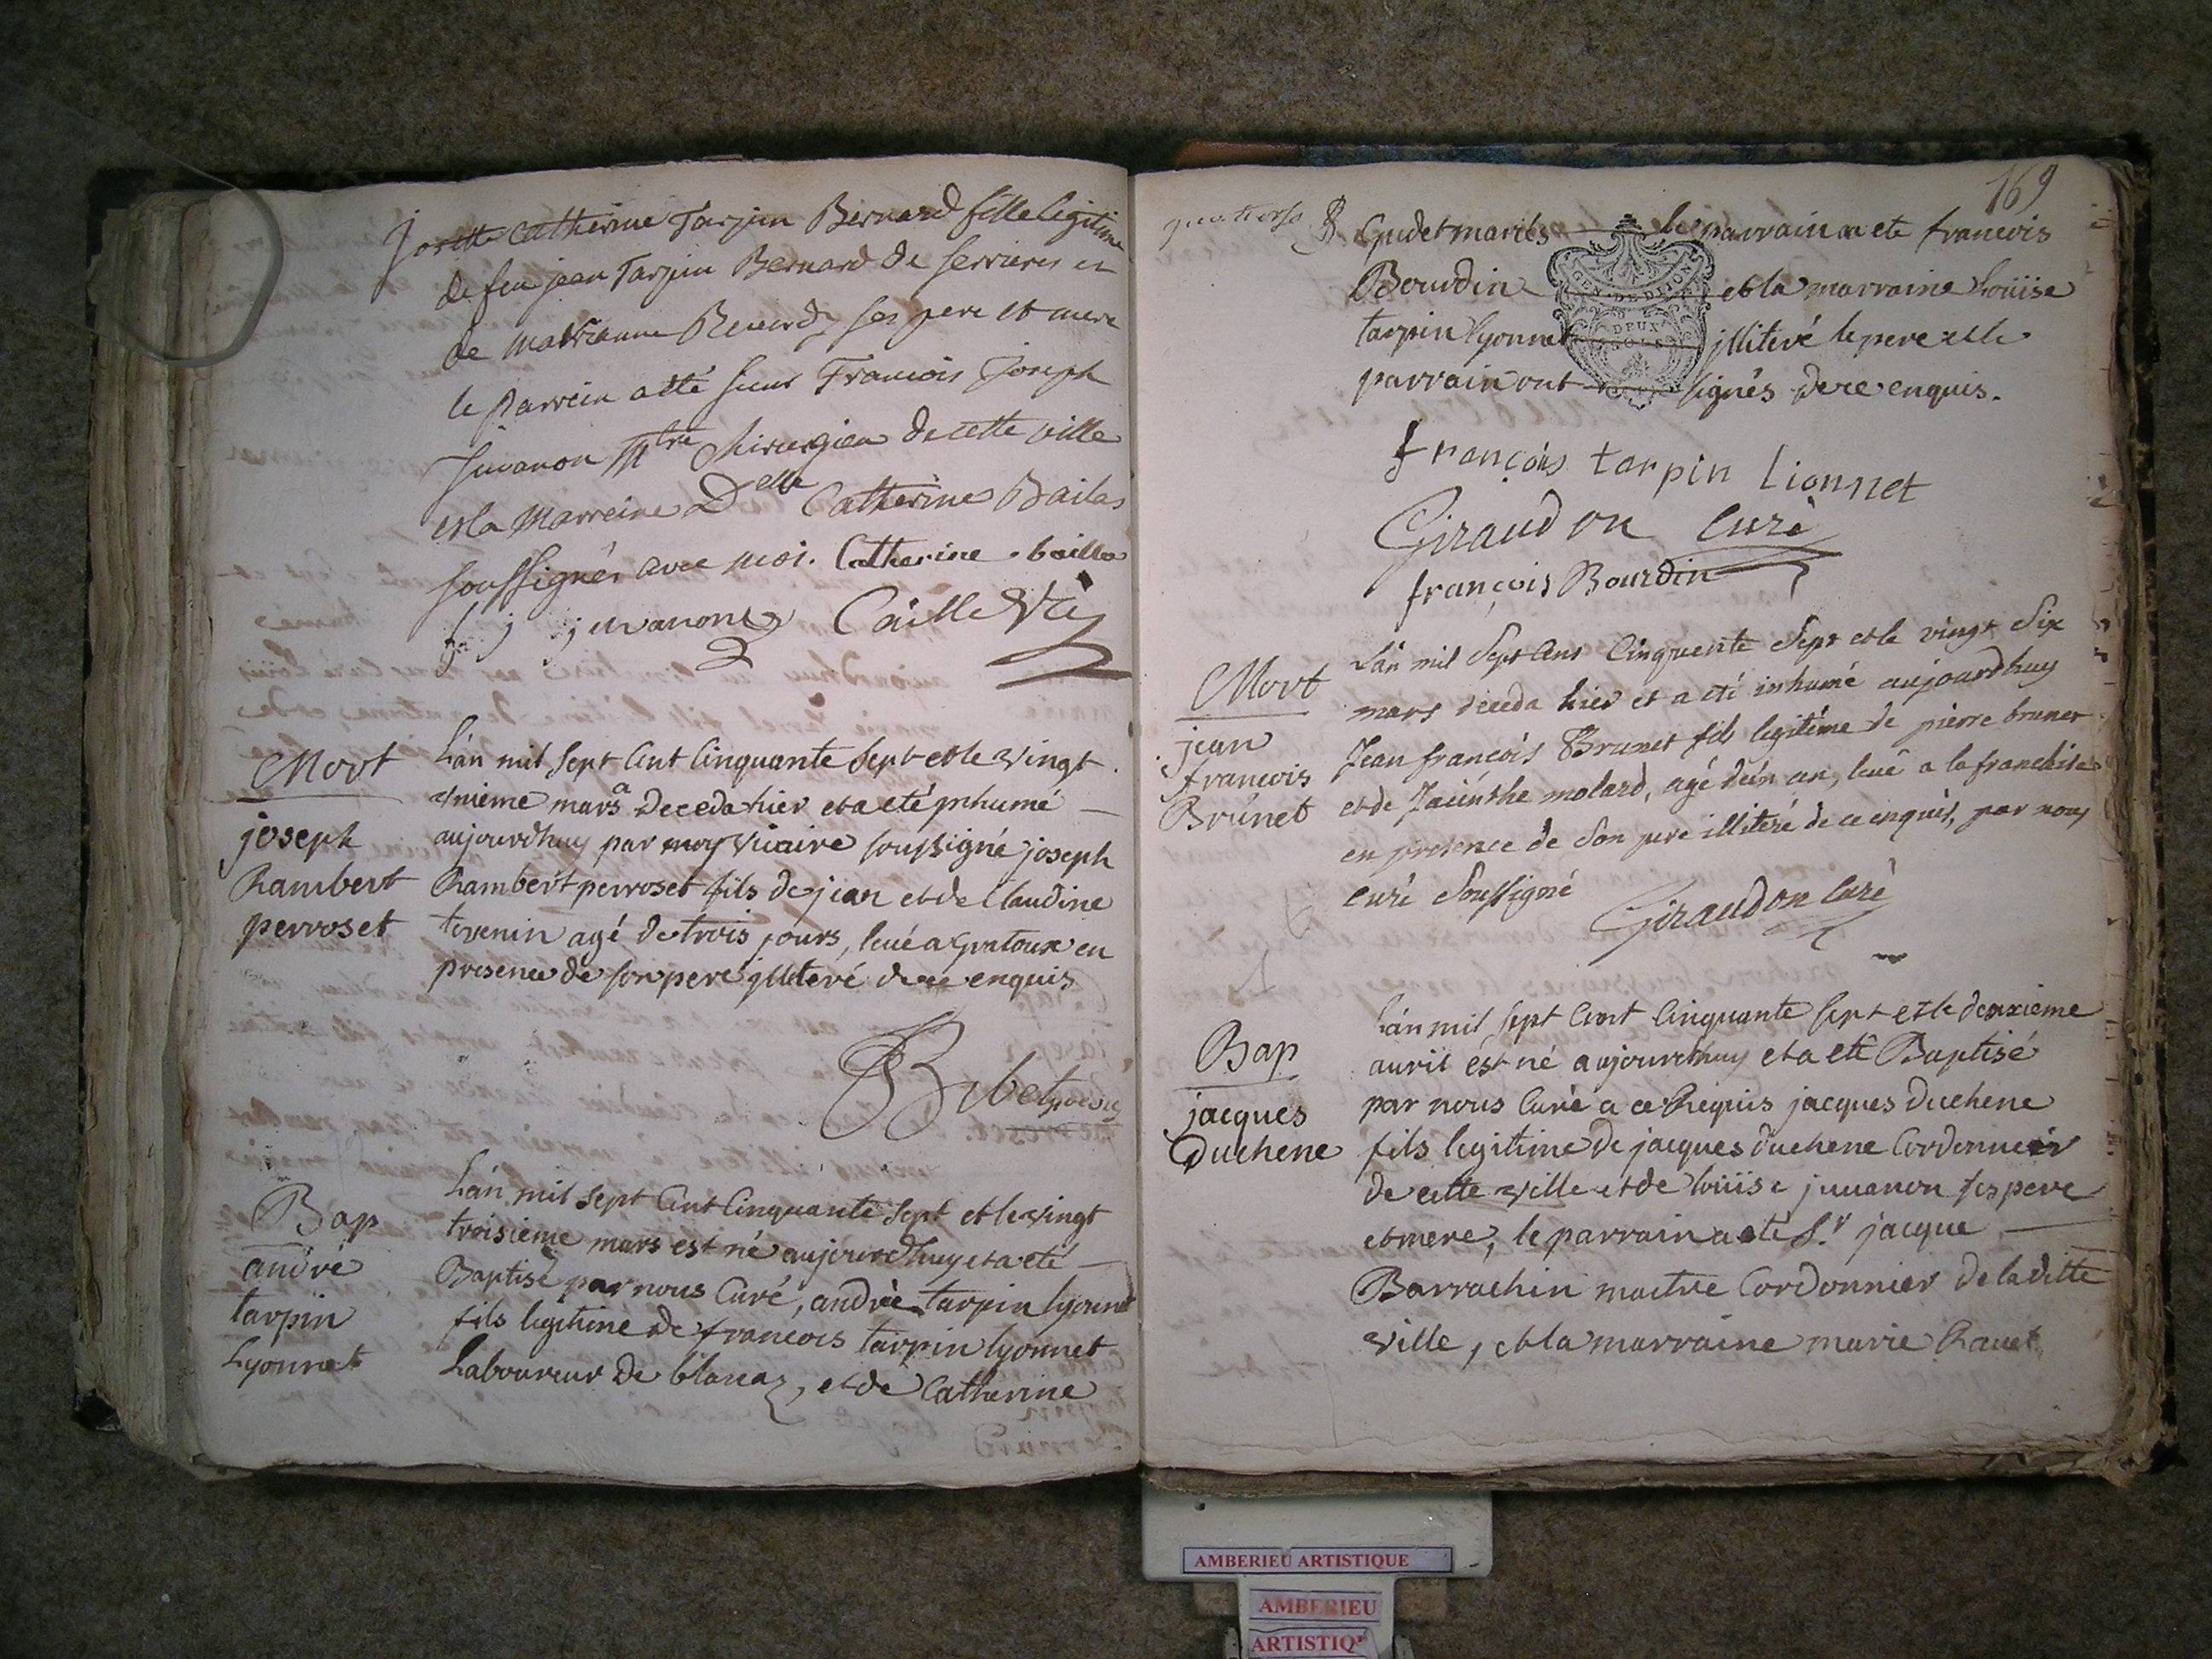 Josette Catherine Tarpin Bernard fille legitime
de feu jean Tarpin Bernard de serrieres et
de marianne ses pere et mere
le parrein a été sieur Francois Joseph
Juvanon Mtre Chirurgien de cette ville
et la Marreine Delle Catherine Bailas
soussignés avec moi. Catherine bailla
f j juvanon Caille Vic
Mort
joseph
Rambert
perroset
L'an mil sept Cent Cinquante sept et le vingt
unieme mars a deceda hier et a eté inhumé
aujourdhuy par moy vicaire soussigné joseph
Rambert perroset fils de jean et de Claudine
tevenin agé de trois jours, levé a en
presence de son pere illiteré de ce enquis
Bap
andré
tarpin
Lyonnet
L'an mil sept Cent Cinquante sept et le vingt
troisieme mars est né aujourdhuy et a eté
Baptisé par nous Curé, andré tarpin lyonnet
fils legitime de francois tarpin lyonnet
Laboureur de blanaz, et de Catherine
169
Cudet mariés le parrain a eté francois
Bourdin et la marraine Loüise
tarpin lyonnet illiteré le pere et le
parrain ont signés de ce enquis.
GEN. DE DIJON
DEUX
SOLS
françois tarpin Lionnet
Giraudon Curé
françois Bourdin
Mort
jean
francois
Brunet
L'an mil Sept Cens Cinquente Sept et le vingt Six
mars deceda hier et a été inhumé aujourdhuy
Jean françois Brunet fils legitime de pierre brunet
et de Jacinthe molard, agé d'un an, levé a la franchise
en presence de son pere illiteré de ce enquis, par nous
curé Soussigné
Giraudon Curé
Bap
jacques
Duchene
L'an mil sept Cent Cinquante sept et le deuxieme
avril est né aujourdhuy et a eté Baptisé
par nous Curé a ce Requis jacques Duchene
fils legitime de jacques duchene Cordonnier
de cette ville et de loüise juvanon ses pere
et mere, le parrain a eté S.r jacque
Barrachin maitre Cordonnier de laditte
ville, et la marraine marie Ravet
AMBERIEU ARTISTIQUE
AMBERIEU
ARTISTIQ